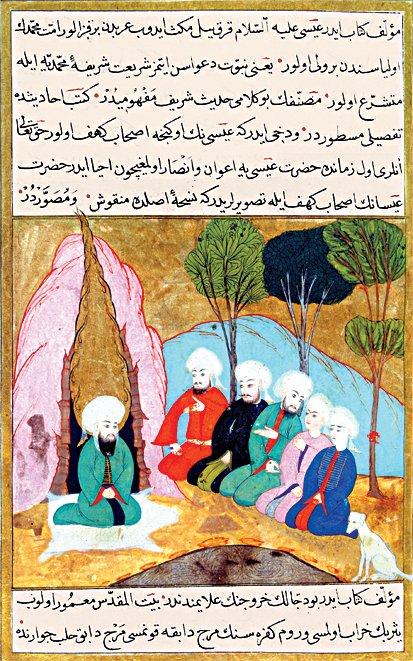 مؤلف كتاب ايدر عيسى عليه السلام قرق ييل مكث ايدوب عربدن بر قز الور امت محمدك
اولياسندن بر ولى اولور يعنى نبوت دعواسن ايتمز شريعت شريفهٔ محمديه ايله
متشرع اولور مصنفك بو كلامى حديث شريف مفهوميدر كتب احاديثده
تفصيلى مسطوردر ودخى ايدر كه عيسى نك اصحاب كهف اولور حق تعالى
انلرى اول زمانده حضرت عيسى يه اعوان وانصار اولمغيچون احيا ايدر حضرت
عيسانك اصحاب كهف ايله تصويرلريدر كه نسخهٔ اصلده منقوش ومصوردر
مؤلف كتاب ايدر بو دجالك خروجنك علايمندندر بيت المقدس معمور اولوب
يثربك خراب اولمسى وروم كفره سنك مرج دابقه قونمسى مرج دابق حلب جوارنده